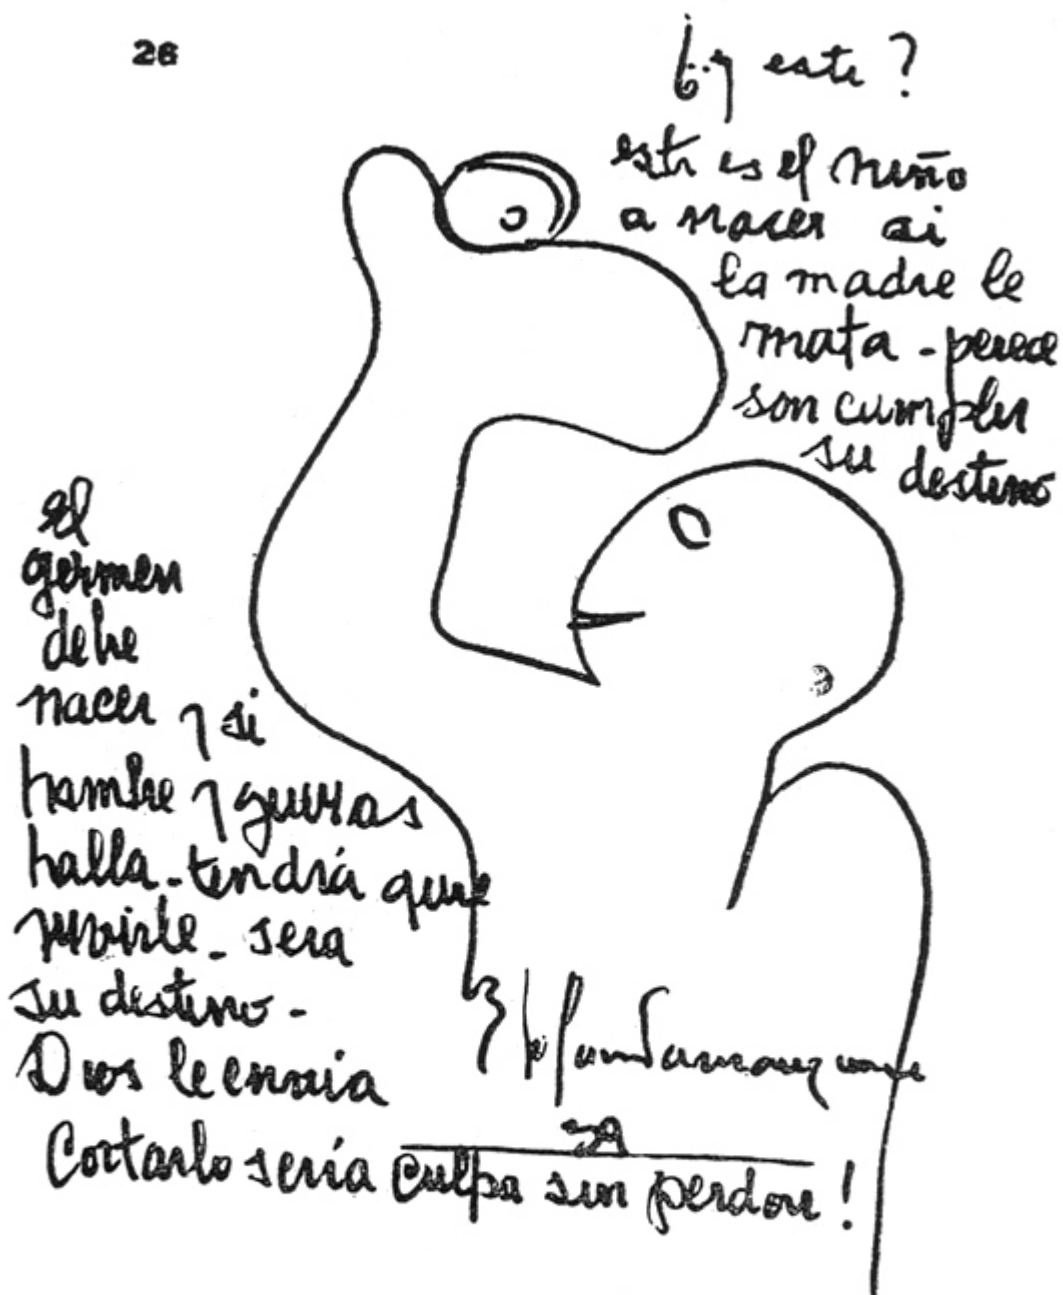 26
¿y este?
este es el niño
a nacer si
la madre le
mata - perece
son cumplir
su destino
El
germen
debe
nacer y si
hambre y guerras
halla - tendrá que
morirle - sera
su destino -
Dios le envia
Cortarlo sería culpa sin perdon!